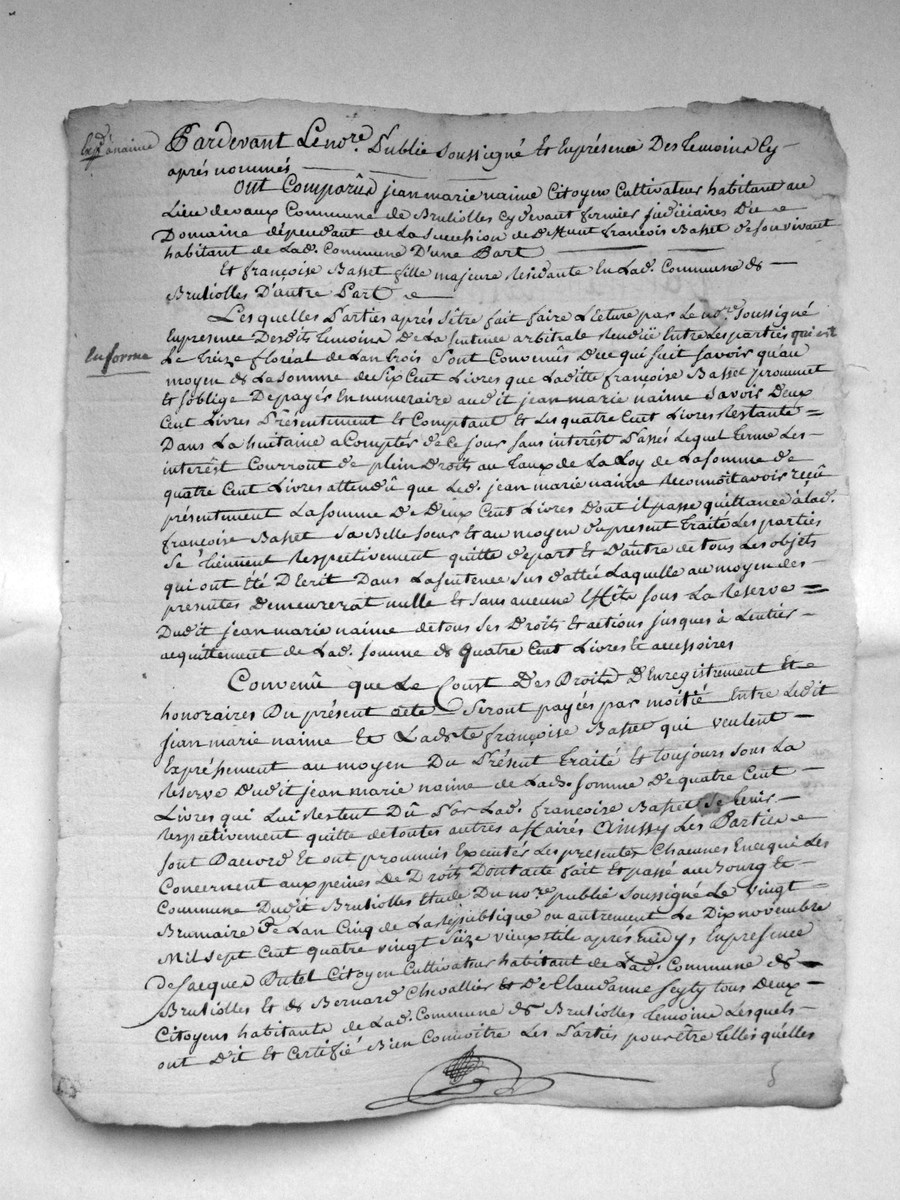 Pardevant Le nore. Publié soussigné Et Enprésence Des temoins Cy
aprés nommés
ont Comparûs jean marie naime Citoyen Cultivateur habitant au
Lieu devaux Commune de Brusiolles Cy devant fermier judiciaires Du
Domaine dépendant de La Succession de Francois Basset de son vivant
habitant de Lad. Commune D'une Part
Et françoise Basset fille majeure Residante En Lad. Commune de
Brusiolles D'autre Part
Lesquelles Parties aprés s'être fait faire L'Ecture par Le nore. soussigné
Enpresence Desdits temoins De La sentence arbitrale Renduë Entre Les parties
Enforme
Le treize floréal de Lan trois sont Convenûs De ce qui suit savoir qu'au
moyen de La somme de six Cent Livres que Laditte françoise Basset prommet
Et soblige De payér En numeraire audit jean marie naime savoir Deux
Cent Livres Présentement Et Comptant Et Les quatre Cent Livres Restante
Dans La huitaine a Comptér de Ce jour sans interêst Passés Lequel terme Les
interêst Courront de plein Droits au taux de La Loy de La somme de
quatre Cent Livres attendû que Led. jean marie naime Reconnoit avoir reçû
présentement La somme De Deux Cent Livres Dont il passe quittance à Lad.
françoise Basset sa Belle soeur Et au moyen du present traité Les parties
se tiennent Respectivement quitte de part Et D'autre de tous Les objets
qui ont Eté D'Ecrit Dans La sentence sus dattée Laquelle au moyen des
presentes Demeurerat nulle Et sans aucune Effets sous La Reserve
Dudit jean marie naime de tous ses Droits Et actions jusques à Lentier
acquittement de Lad. somme de quatre Cent Livres Et accessoires
Convenû que Le Coust Des Droits D'Enregistrement Et
honoraires Du présent acte Seront payés par moitié Entre Ledit
jean marie naime Et Ladite françoise Basset qui veulent
Expréssement au moyen Du Présent traité Et toujours sous La
Reserve Dudit jean marie naime de Lad. somme De quatre Cent
Livres qui Lui Restent Dû Par Lad. françoise Basset se tenir
Respectivement quitte de toutes autres affaires Ainssy Les Parties
sont Daccord Et ont prommis Executér Les presentes Chacunes En ce qui Les
Concernent aux peines De Droits Dont acte fait Et passé au Bourg Et
Commune Dudit Brusiolles Etude Du nore. publié soussigné Le vingt
Brumaire De Lan Cinq de La République ou autrement Le Dix novembre
Mil sept Cent quatre vingt seize vieux stile aprés midy, En presence
De Jacques Dutel Citoyen Cultivateur habitant de Lad. Commune de
Brusiolles Et de Bernard Chevallier Et De Claudanne Seyty tous Deux
Citoyens habitants de Lad. Commune de Brusiolles temoins Lesquels
ont Dit Et Certifié Bien Connoitre Les Parties pour être telles quelles